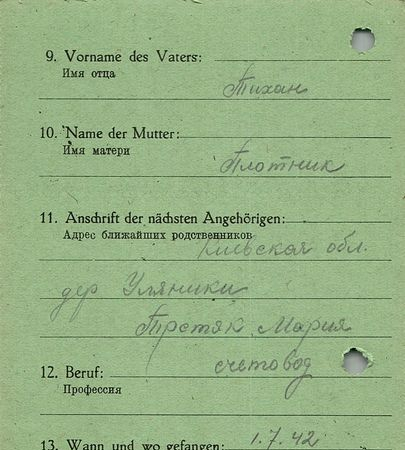 9. Vorname des Vaters:
Имя отца
Тихан
10. Name der Mutter:
Имя матери
Плотник
11. Anschrift der nächsten Angehörigen:
Адрес ближайших родственников
Киевская обл.
дер Уляники
Третяк Мария
12. Beruf:
счетовод
Профессия
13. Wann und wo gefangen: 1.7.42